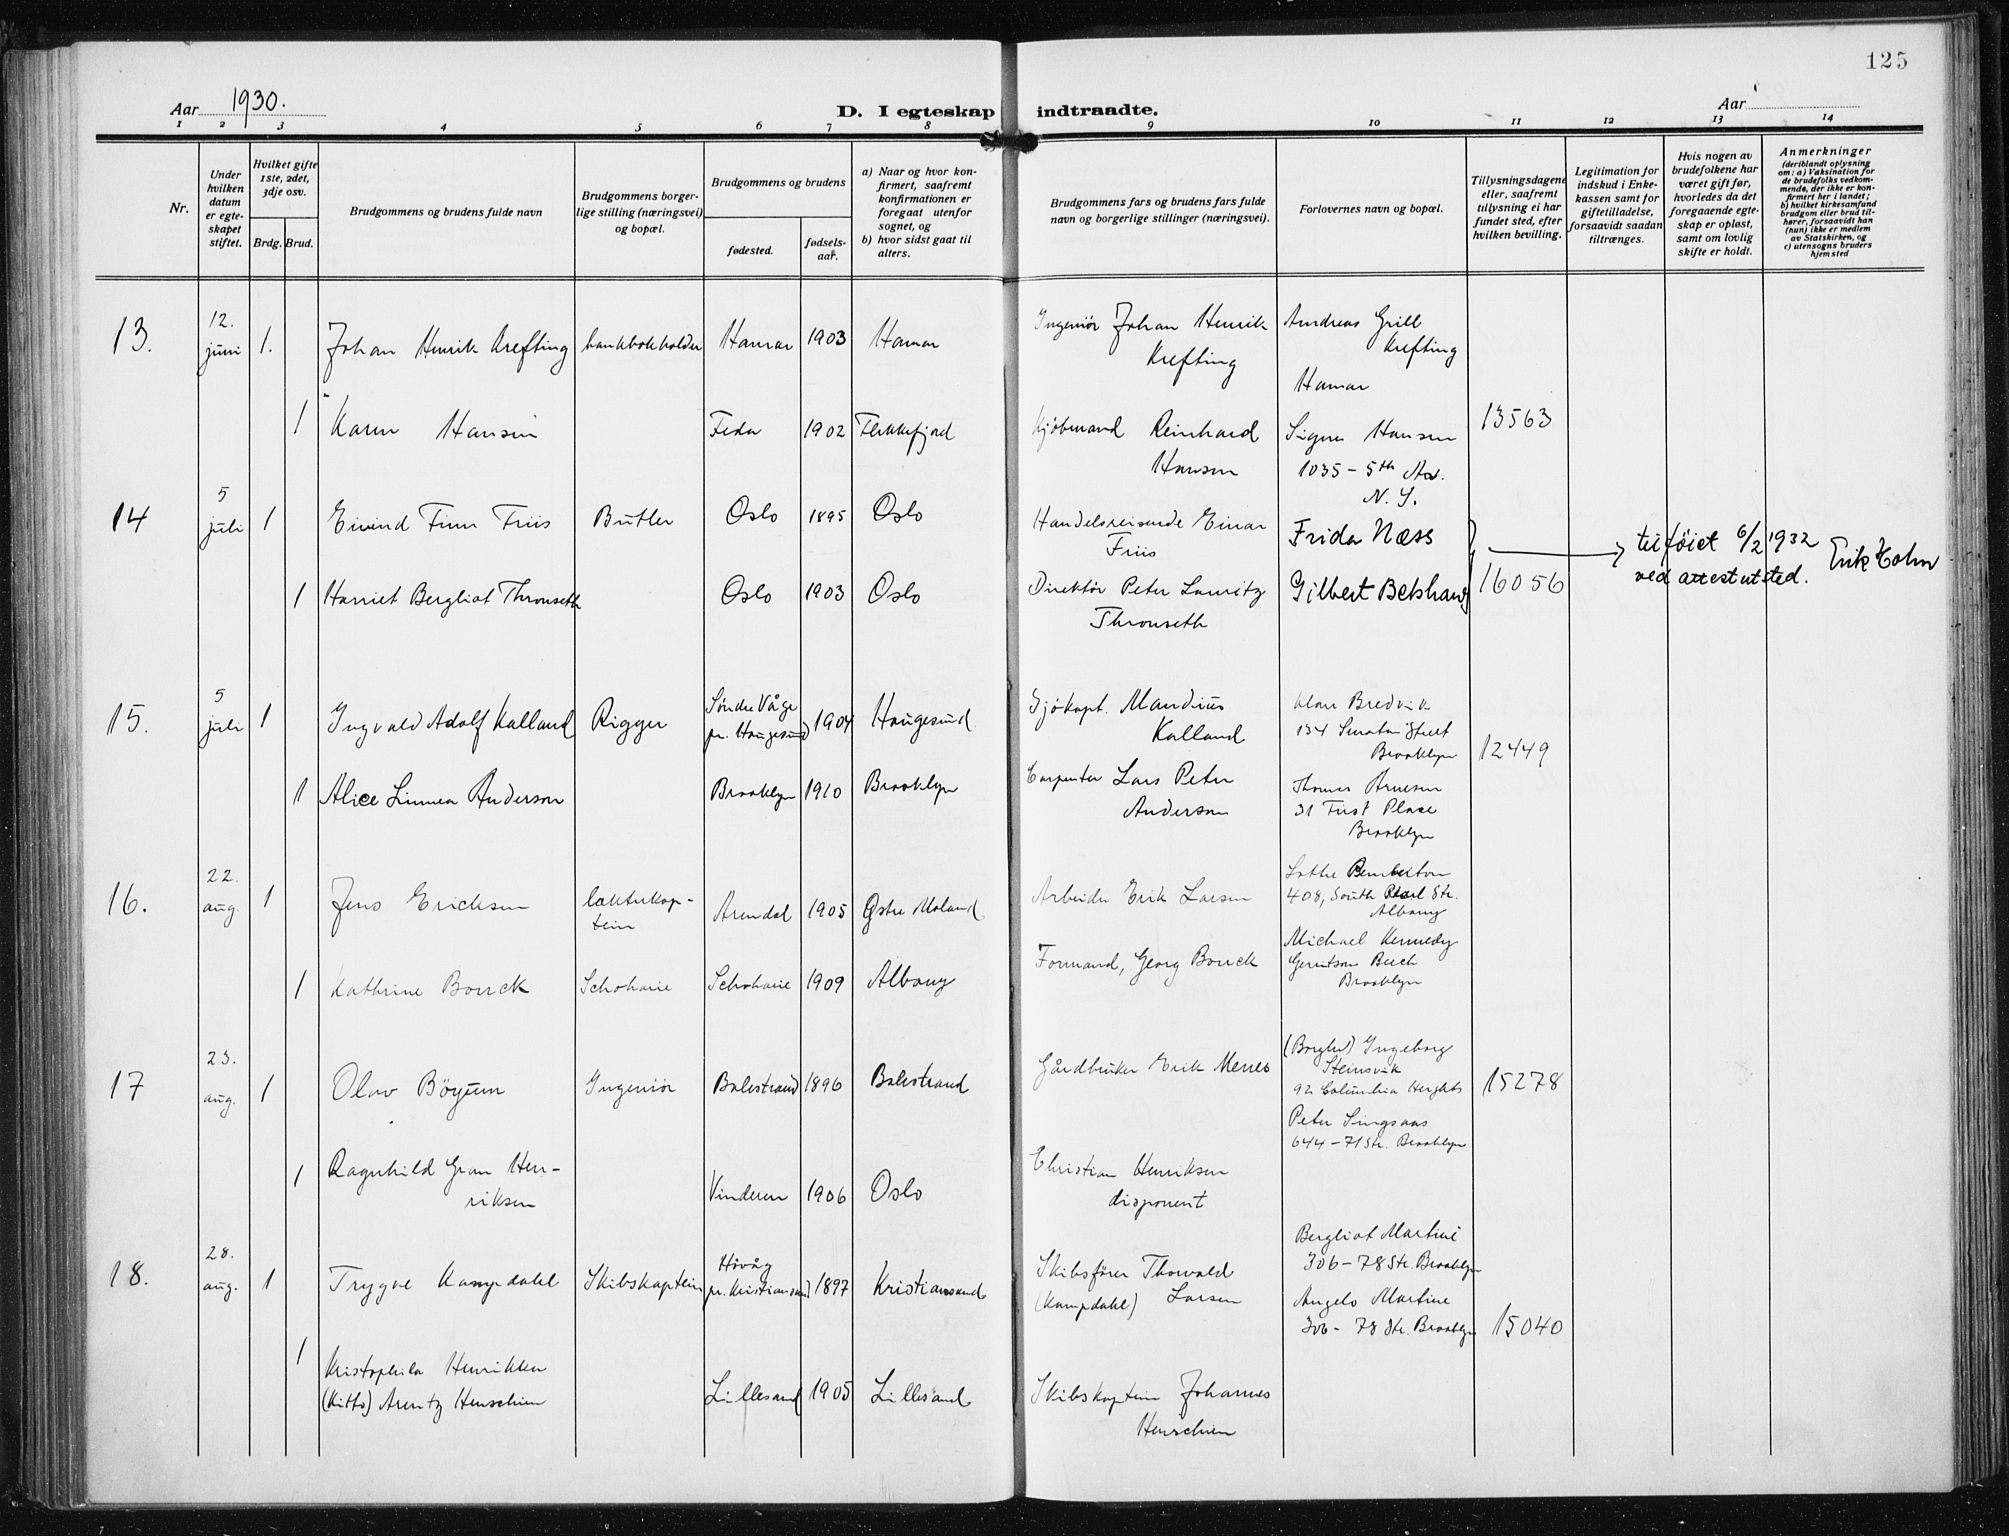 125
Aar 1930.
D. I egteskap indtraadte.
Aar
1 2 3 4 5 6 7 8 9 10 11 12 13 14
Nr.
Under hvilken datum er egteskapet stiftet.
Hvilket gifte 1ste, 2det, 3dje osv.
Brdg. Brud.
Brudgommens og brudens fulde navn
Brudgommens borgerlige stilling (næringsvei) og bopæl.
Brudgommens og brudens
fødested.
fødselsaar.
a) Naar og hvor konfirmert, saafremt konfirmationen er foregaat utenfor sognet, og
b) hvor sidst gaat til alters.
Brudgommens fars og brudens fars fulde navn og borgerlige stillinger (næringsvei).
Forlovernes navn og bopæl.
Tillysningsdagene eller, saafremt tillysning ei har fundet sted, efter hvilken bevilling.
Legitimation for indskud i Enkekassen samt for giftetilladelse, forsaavidt saadan tiltrænges.
Hvis nogen av brudefolkene har været gift før, hvorledes da det foregaaende egteskap er opløst, samt om lovlig skifte er holdt.
Anmerkninger
(deriblandt oplysning om: a) Vaksination for de brudefolks vedkommende, der ikke er konfirmert her i landet; b) hvilket kirkesamfund brudgom eller brud tilhører, forsaavidt han (hun) ikke er medlem av Statskirken, og c) utensogns bruders hjemsted
13. 12. juni 1. Johan Henrik Krefting bankbokholder Hamar 1903 Hamar Ingeniør Johan Henrik Krefting Andreas Grill Krefting Hamar
1 Karen Hansen Feda 1902 Flekkefjord Kjøbmand Reinhard Hansen Signe Hansen 1035 - 5th Av. N. Y. 13563
14 5 juli 1 Eivind Finn Friis Butler Oslo 1895 Oslo Handelsreisende Einar Friis Frida Næss
1 Harriet Bergliot Thronseth Oslo 1903 Oslo Direktør Peter Lauritz Thronseth Gilbert Betshang 16056
tilføiet 6/2 1932 ved attest utsted. Erik Holm
15. 5 juli 1 Ingvald Adolf Kalland Rigger Søndre Våge pr. Haugesund 1904 Haugesund Sjökapt. Mandius Kalland Klara Bredvik 134 Street Brooklyn 12449
1 Alice Linnea Anderson Brooklyn 1910 Brooklyn Carpenter Lars Peter Anderson Thomas Arnesen 31 First Place Brooklyn
16. 22. aug. 1 Jens Ericksen lekterkaptein Arendal 1905 Østre Moland Arbeider Erik Larsen Lottie Pemberton 408, South Pearl Str. Albany
1 Kathrine Bouck Schoharie Schoharie 1909 Albany Formand, Georg Bouck Michael Kennedy Gerritsen Beach Brooklyn
17 23. aug. 1 Olav Böyum Ingeniör Balestrand 1896 Balestrand Gårdbruker Erik Menes (Borghild) Ingeborg Steinsvik 92 Columbia Heights 15278
Peter Singsaas 644 - 71 Str. Brooklyn
1 Ragnhild Gran Henriksen Vinderen 1906 Oslo Christian Henriksen disponent
18. 28. aug. 1 Trygve Kampdahl Skibskaptein Hövåg pr. Kristiansand 1897 Kristiansand Skibsfører Thorvald (Kampdahl) Larsen Bergliot Martine 306 - 78 Str. Brooklyn
Angelo Martine 306 - 78 Str. Brooklyn 15040
1 Henrikken (Kitto) Arentz Henschien Lillesand 1905 Lillesand Skibskaptein Johannes Henschien